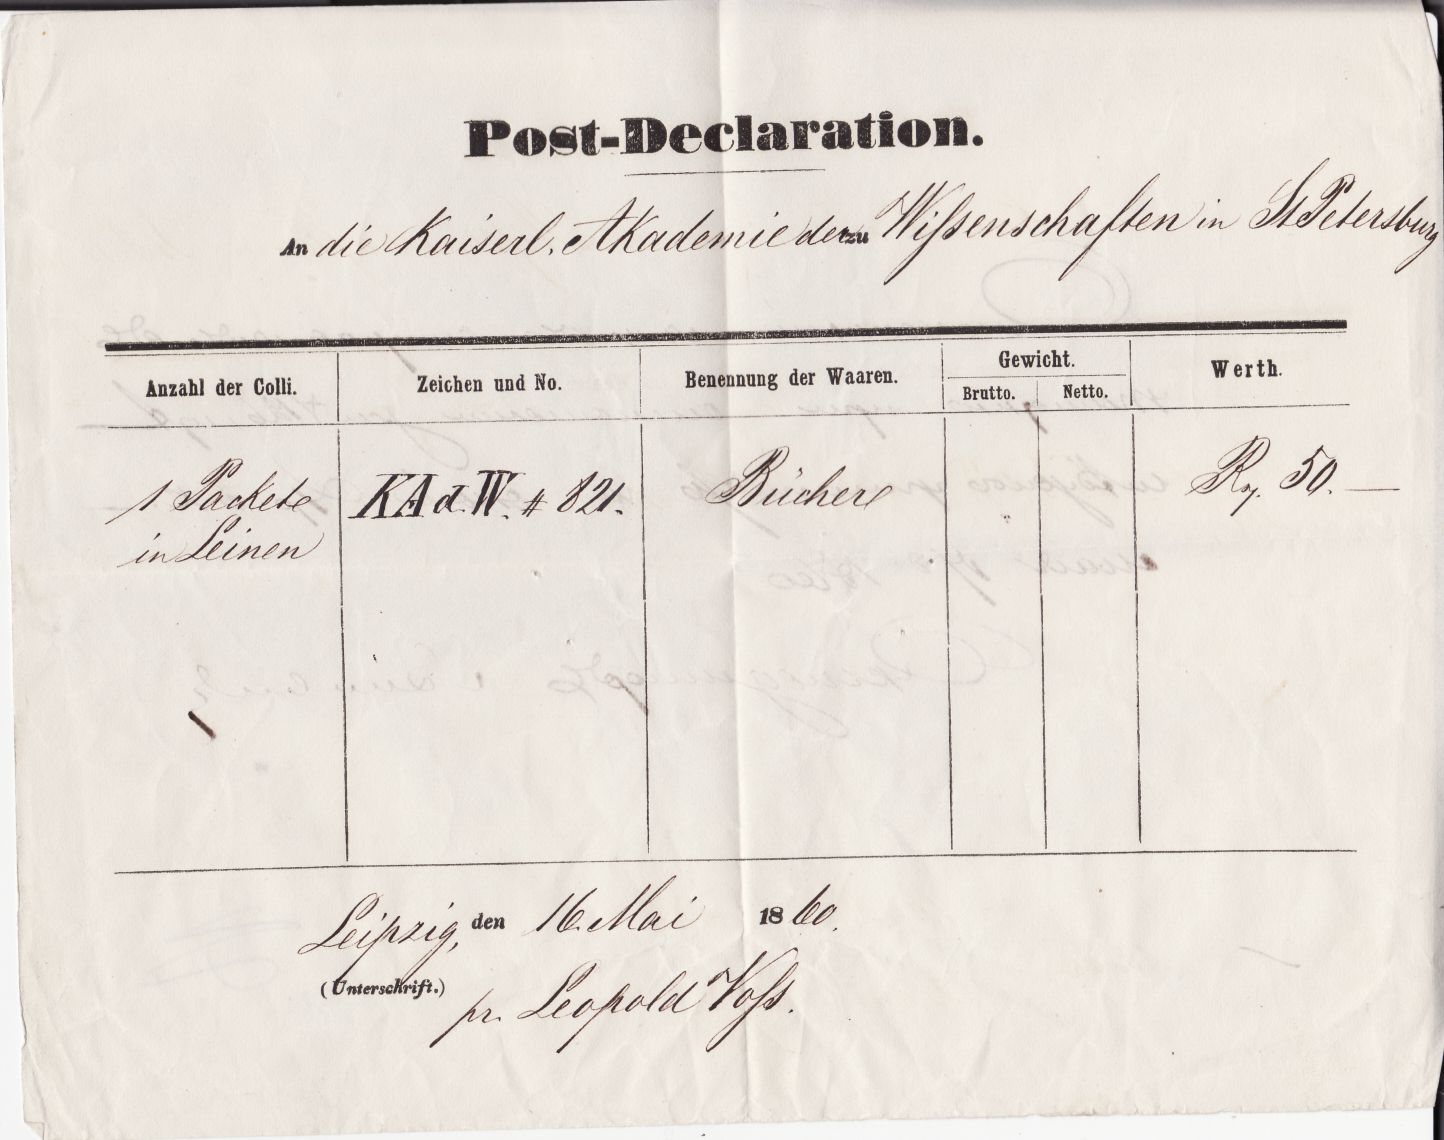 Post-Declaration.
An die Kaiserl. Akademie der zu Wissenschaften in St Petersburg
Anzahl der Colli. Zeichen und No. Benennung der Waaren. Gewicht. Werth.
Brutto. Netto.
1 Packete KAd.W. # 821. Bücher 50.
in Leinen
Leipzig, den 16. Mai 1860.
(Unterschrift.)
pr. Leopold Voss.